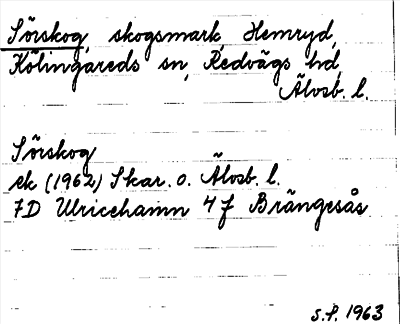 Sörskog, skogsmark, Hemryd,
Kölingareds sn, Redvägs hd,
Älvsb. l.
Sörskog
ek (1962) Skar. o. Älvsb. l.
7D Ulricehamn 4 f Brängesås
S.F. 1963